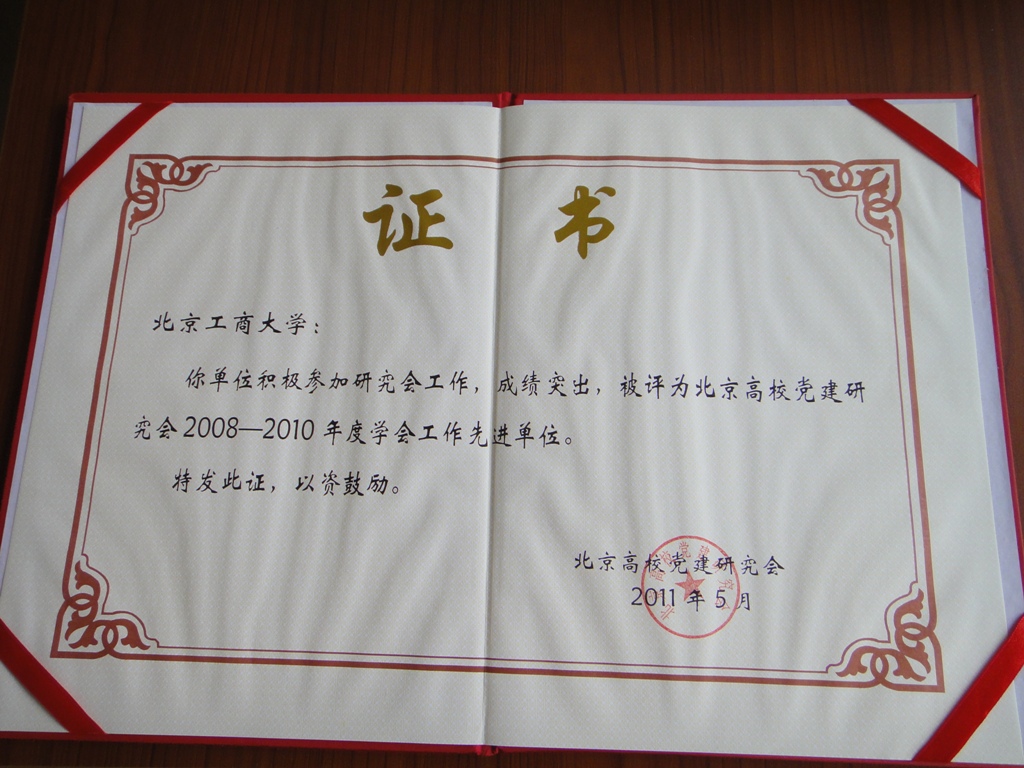 证书
北京工商大学：
你单位积极参加研究会工作，成绩突出，被评为北京高校党建研
究会2008—2010年度学会工作先进单位。
特发此证，以资鼓励。
北京高校党建研究会
2011年5月
北京高校党建研究会